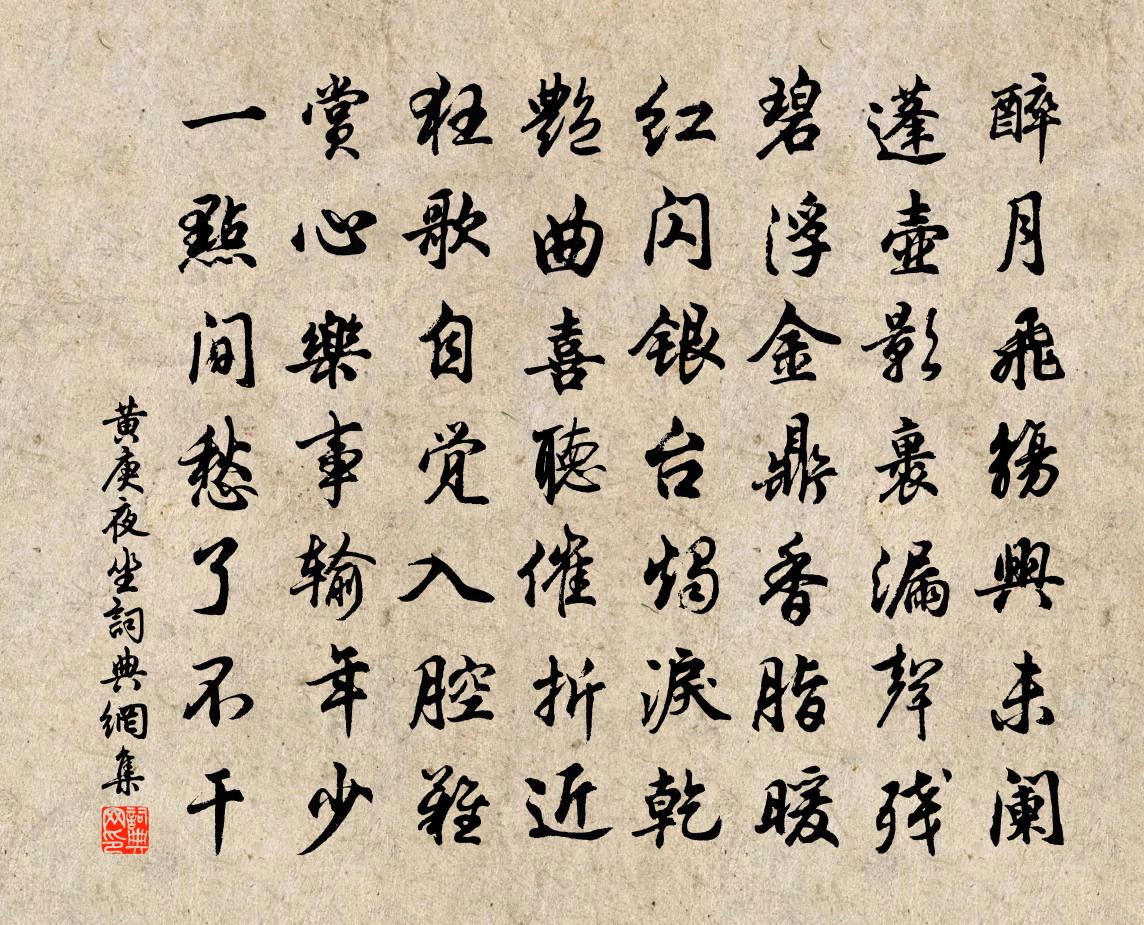 醉月飛觴興未闌
蓬壺影裏漏聲残
碧浮金鼎香脂暖
红闪銀台燭淚乾
艷曲喜聽催折近
狂歌自觉入腔難
賞心樂事输年少
一點閒愁了不干
黄庚夜坐詞典網集
詞典网印